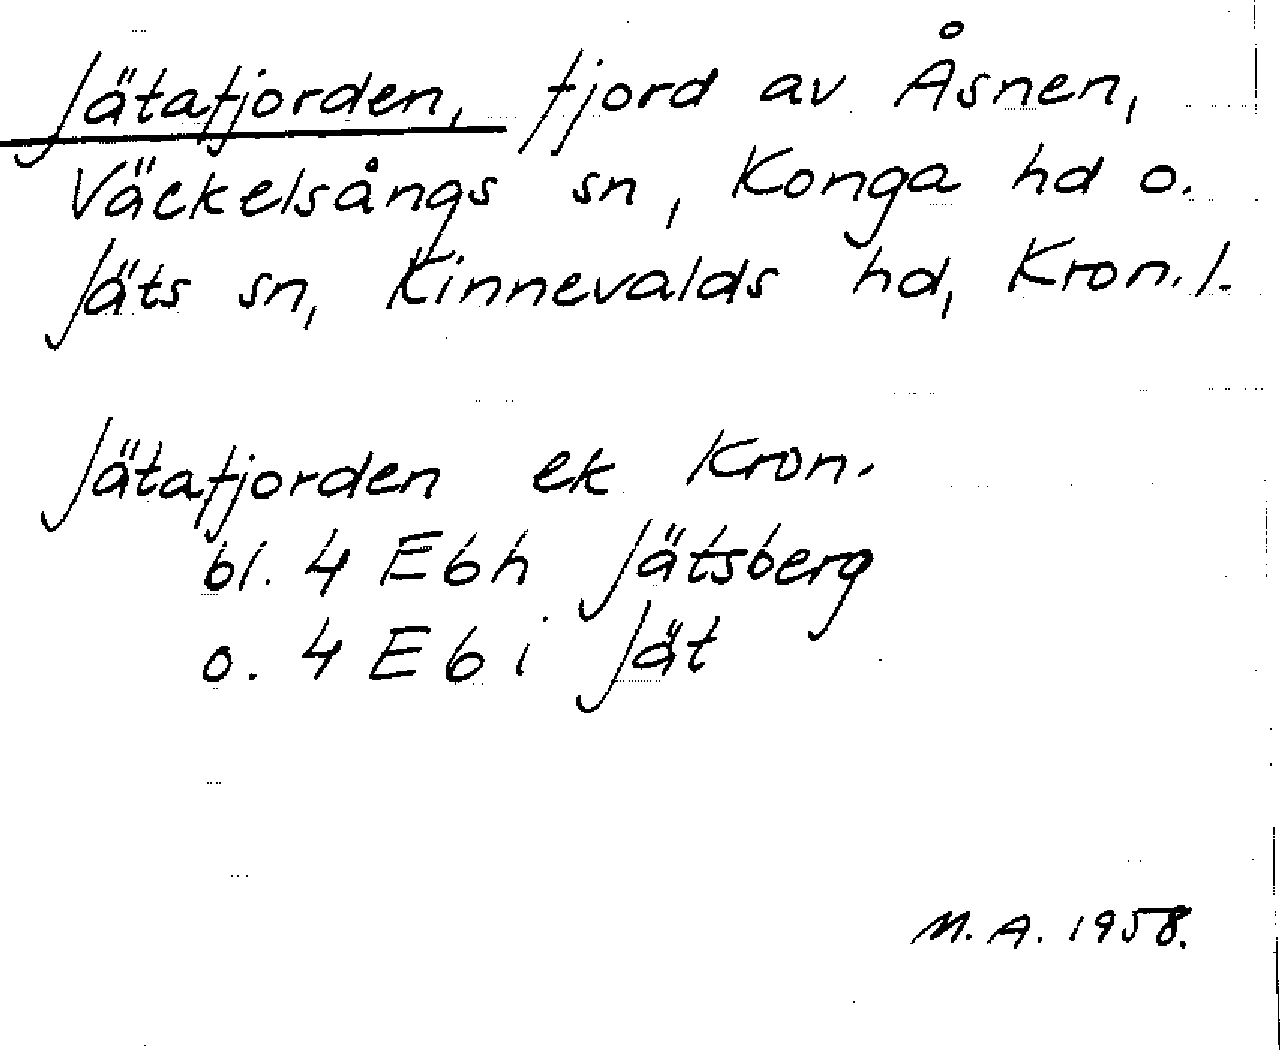 Jätafjorden, fjord av Åsnen,
Väckelsångs sn, Konga hd o.
Jäts sn, Kinnevalds hd, Kron. l.
Jätafjorden ek Kron.
bl. 4 E 6 h Jätsberg
o. 4 E 6 i Jät
M. A. 1958.